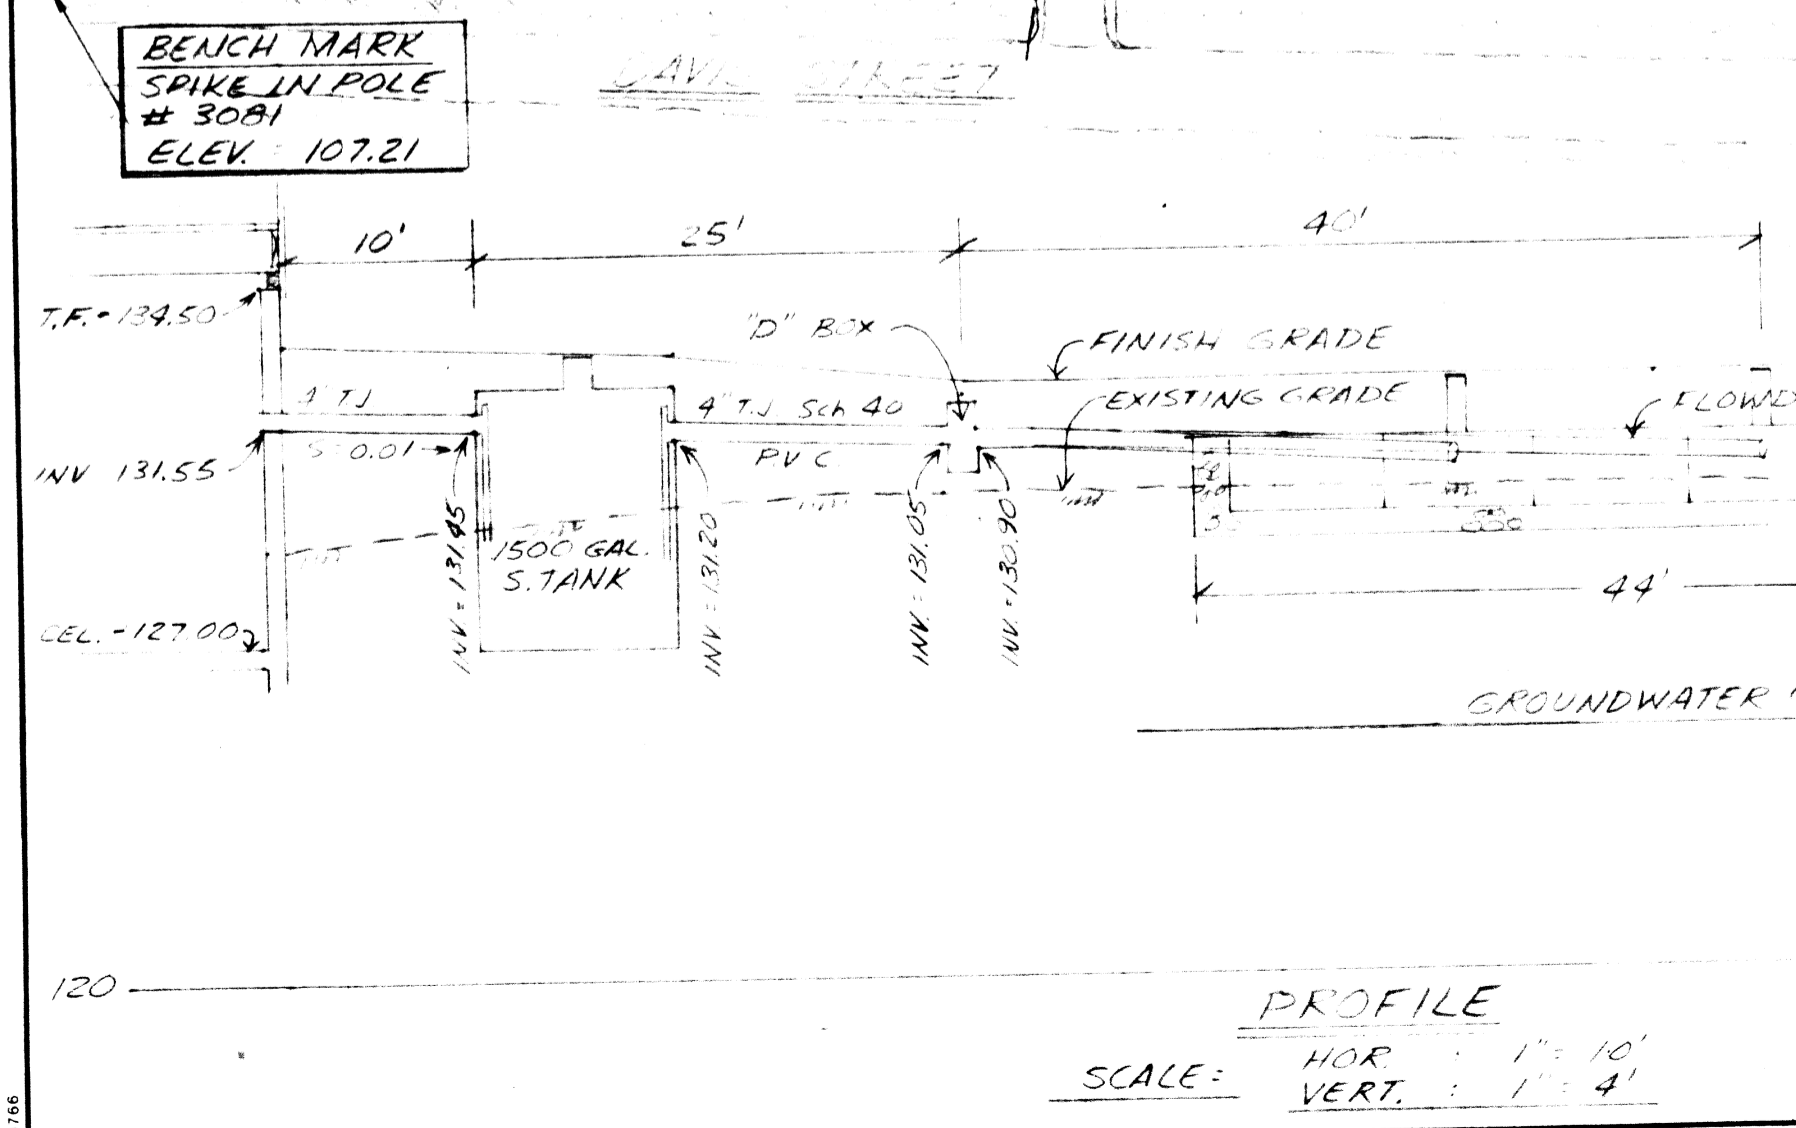 BENCH MARK
SPIKE IN POLE
# 3081
ELEV. 107.21
DAVIS STREET
10'
25'
40'
T.F.-134.50
"D" BOX
FINISH GRADE
4" TJ
4" T.J. Sch 40
EXISTING GRADE
S=0.01
P.V.C.
INV 131.55
INV.=131.45
1500 GAL.
S. TANK
INV.=131.20
INV.=131.05
INV.=130.90
44'
CEL.-127.00
GROUNDWATER
120
PROFILE
SCALE:
HOR. : 1"=10'
VERT. : 1"=4'
766